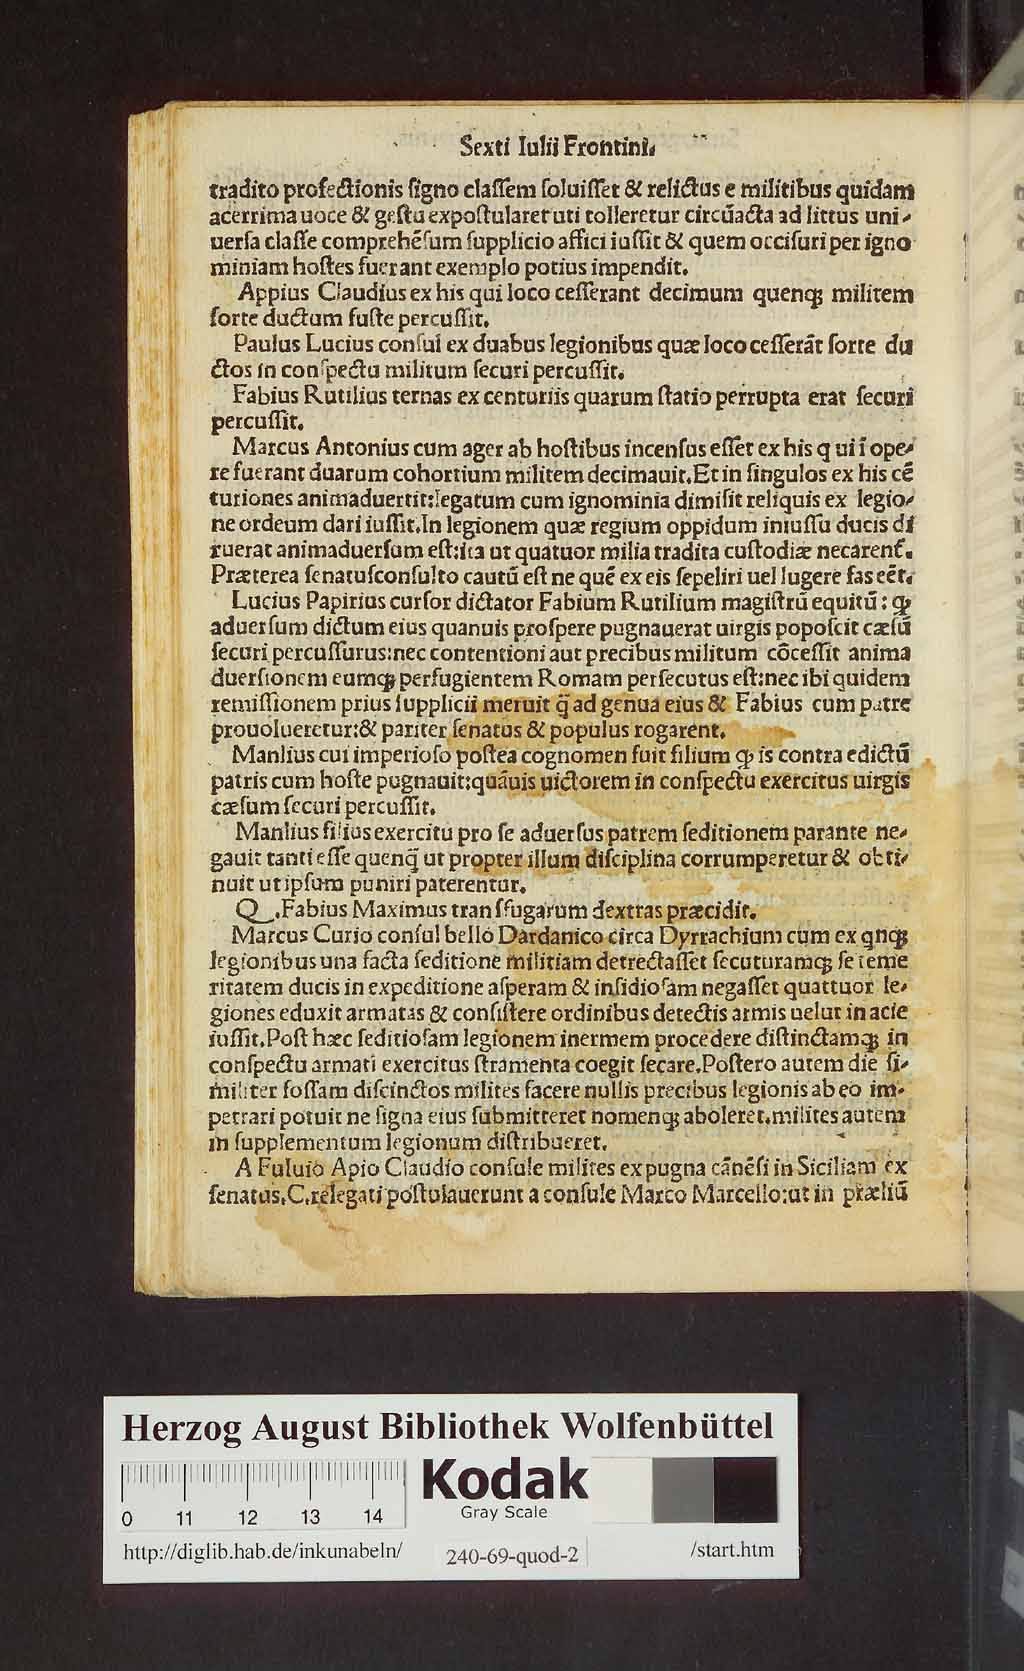 Sexti Iulii Frontini.
tradito profectionis ſigno claſſem ſoluiſſet & relictus e militibus quidam
acerrima uoce & geſtu expoſtularet uti tolleretur circūacta ad littus uni-
uerſa claſſe comprehēſum ſupplicio affici iuſſit & quem occiſuri per igno
miniam hoſtes fuerant exemplo potius impendit.
Appius Claudius ex his qui loco ceſſerant decimum quenqꝫ militem
ſorte ductum fuſte percuſſit.
Paulus Lucius conſul ex duabus legionibus quæ loco ceſſerāt ſorte du
ctos in conſpectu militum ſecuri percuſſit.
Fabius Rutilius ternas ex centuriis quarum ſtatio perrupta erat ſecuri
percuſſit.
Marcus Antonius cum ager ab hoſtibus incenſus eſſet ex his q ui ī ope-
re fuerant duarum cohortium militem decimauit. Et in ſingulos ex his cē
turiones animaduertit: legatum cum ignominia dimiſit reliquis ex legio-
ne ordeum dari iuſſit. In legionem quæ regium oppidum iniuſſu ducis di
ruerat animaduerſum eſt: ita ut quatuor milia tradita cuſtodiæ necarent᷑.
Præterea ſenatuſconſulto cautū eſt ne quē ex eis ſepeliri uel lugere fas eēt.
Lucius Papirius curſor dictator Fabium Rutilium magiſtrū equitū: qꝫ
aduerſum dictum eius quanuis proſpere pugnauerat uirgis popoſcit cæſū
ſecuri percuſſurus: nec contentioni aut precibus militum cōceſſit anima
duerſionem eumqꝫ perfugientem Romam perſecutus eſt: nec ibi quidem
remiſſionem prius ſupplicii meruit q̄ ad genua eius & Fabius cum patre
prouolueretur: & pariter ſenatus & populus rogarent.
Manlius cui imperioſo poſtea cognomen fuit filium qꝫ is contra edictū
patris cum hoſte pugnauit: quāuis uictorem in conſpectu exercitus uirgis
cæſum ſecuri percuſſit.
Manlius filius exercitu pro ſe aduerſus patrem ſeditionem parante ne-
gauit tanti eſſe quenq̄ ut propter illum diſciplina corrumperetur & obti-
nuit ut ipſum puniri paterentur.
Q. Fabius Maximus tranſfugarum dextras præcidit.
Marcus Curio conſul bello Dardanico circa Dyrrachium cum ex qnqꝫ
legionibus una facta ſeditione militiam detrectaſſet ſecuturamqꝫ ſe teme
ritatem ducis in expeditione aſperam & inſidioſam negaſſet quattuor le-
giones eduxit armatas & conſiſtere ordinibus detectis armis uelut in acie
iuſſit. Poſt hæc ſeditioſam legionem inermem procedere diſtinctamqꝫ in
conſpectu armati exercitus ſtramenta coegit ſecare. Poſtero autem die ſi-
militer foſſam diſcinctos milites facere nullis precibus legionis ab eo im-
petrari potuit ne ſigna eius ſubmitteret nomenqꝫ aboleret. milites autem
in ſupplementum legionum diſtribueret.
A Fuluio Apio Claudio conſule milites ex pugna cānēſi in Siciliam ex
ſenatus. C. relegati poſtulauerunt a conſule Marco Marcello: ut in præliū
Herzog August Bibliothek Wolfenbüttel
Kodak
Gray Scale
0 11 12 13 14
http://diglib.hab.de/inkunabeln/ 240-69-quod-2 /start.htm